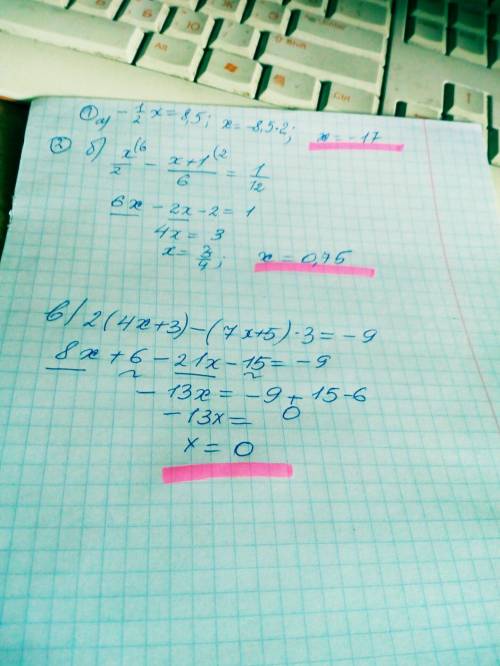 ① а) -1/2 x = 8,5; x = -8,5·2; x = -17
② б) x/2 (6 - x+1/6 (2 = 1/12
6x - 2x - 2 = 1
4x = 3
x = 3/4; x = 0,75
в/ 2(4x+3)-(7x+5)·3 = -9
8x + 6 - 21x - 15 = -9
-13x = -9 + 15 - 6
-13x = 0
x = 0